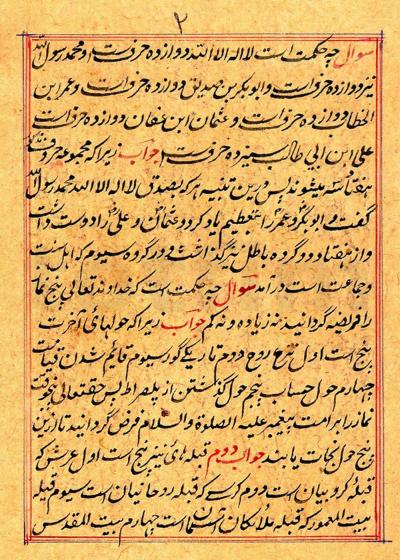 ۲
سوال چه حکمت است لا اله الا الله دوازده حرف است و محمد رسول الله
نیز دوازده حرف است و ابوبکر بن صدیق دوازده حرف است و عمر ابن
الخطاب دوازده حرف است و عثمان ابن عفان دوازده حرف است
علی ابن ابی طالب سیزده حرف است جواب زیرا که مجموعه حروف
هفتاد میشوند پس درین تنبیه هر که بصدق لا اله الا الله محمد رسول الله
گفت و ابوبکر و عمر را تعظیم یاد کرد و عثمان و علی را دوست داشت
و از هفتاد و دو گروه باطل تبرا کذاشت و در گروه سیوم که اهل سنت
و جماعت است درآمد سوال چه حکمت است که خداوند تعالی پنج نماز
را فریضه گردانید نه زیاده و نه کم جواب زیرا که حولهای آخرت
پنج است اول نزع روح دوم تاریکی گور سیوم قائم شدن قیامت
چهارم حول حساب پنجم حول کذشتن از پلصراط پس حقتعالی پنجوقت
نماز را بر امت پیغمبر علیه الصلوة والسلام فرض گردانید تا ازین
پنج حول نجات یابند جواب دوم قبله های نیز پنج است اول عرش که
قبله کروبیان است دوم کرسی که قبله روحانیان است سیوم قبله
بیت المعمور که قبله ملائکان آسمان است چهارم بیت المقدس